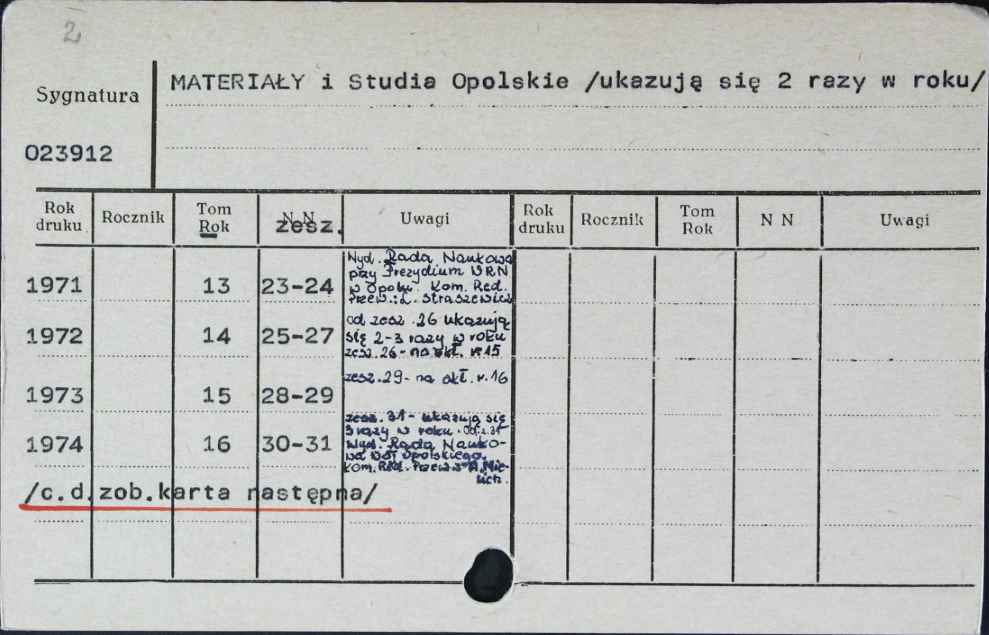 2
MATERIAŁY i Studia Opolskie /ukazują się 2 razy w roku/
Sygnatura
023912
Rok druku Rocznik Tom Rok N N zesz. Uwagi Rok druku Rocznik Tom Rok N N Uwagi
1971 13 23-24
Wyd. Rada Naukowa
przy Prezydium WRN
w Opolu. Kom. Red.
Przew.: L. Straszewicz
1972 14 25-27
od zesz. 26 ukazują
się 2-3 razy w roku
zesz. 26- na okł. r. 15
1973 15 28-29
zesz. 29- na okł. r. 16
1974 16 30-31
zesz. 31- ukazują się
3 razy w roku. Od z. 31
Wyd. Rada Nauko-
wa Opolskiego.
Kom. Red. Przew.
/c.d.zob.karta następna/